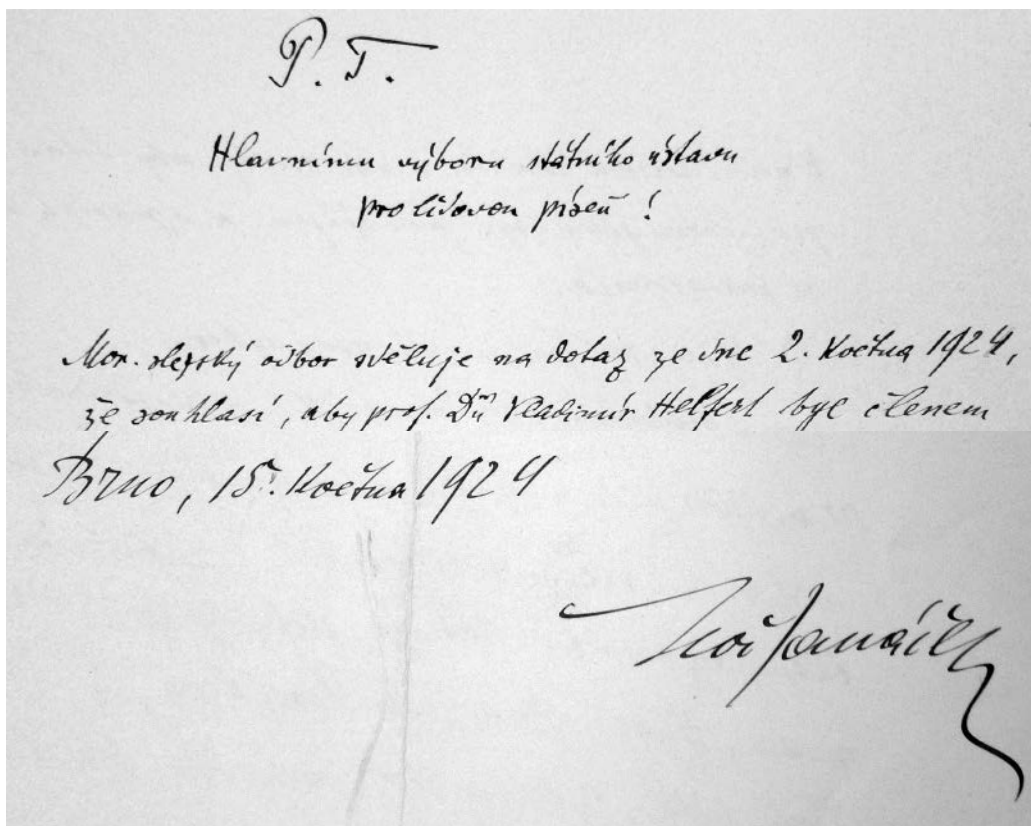 P. T.
Hlavnímu výboru státního ústavu
pro lidovou píseň!
Mor. slezský odbor sděluje na dotaz ze dne 2. května 1924,
že souhlasí, aby prof. Dr Vladimír Helfert byl členem
Brno, 15. května 1924
Leoš Janáček